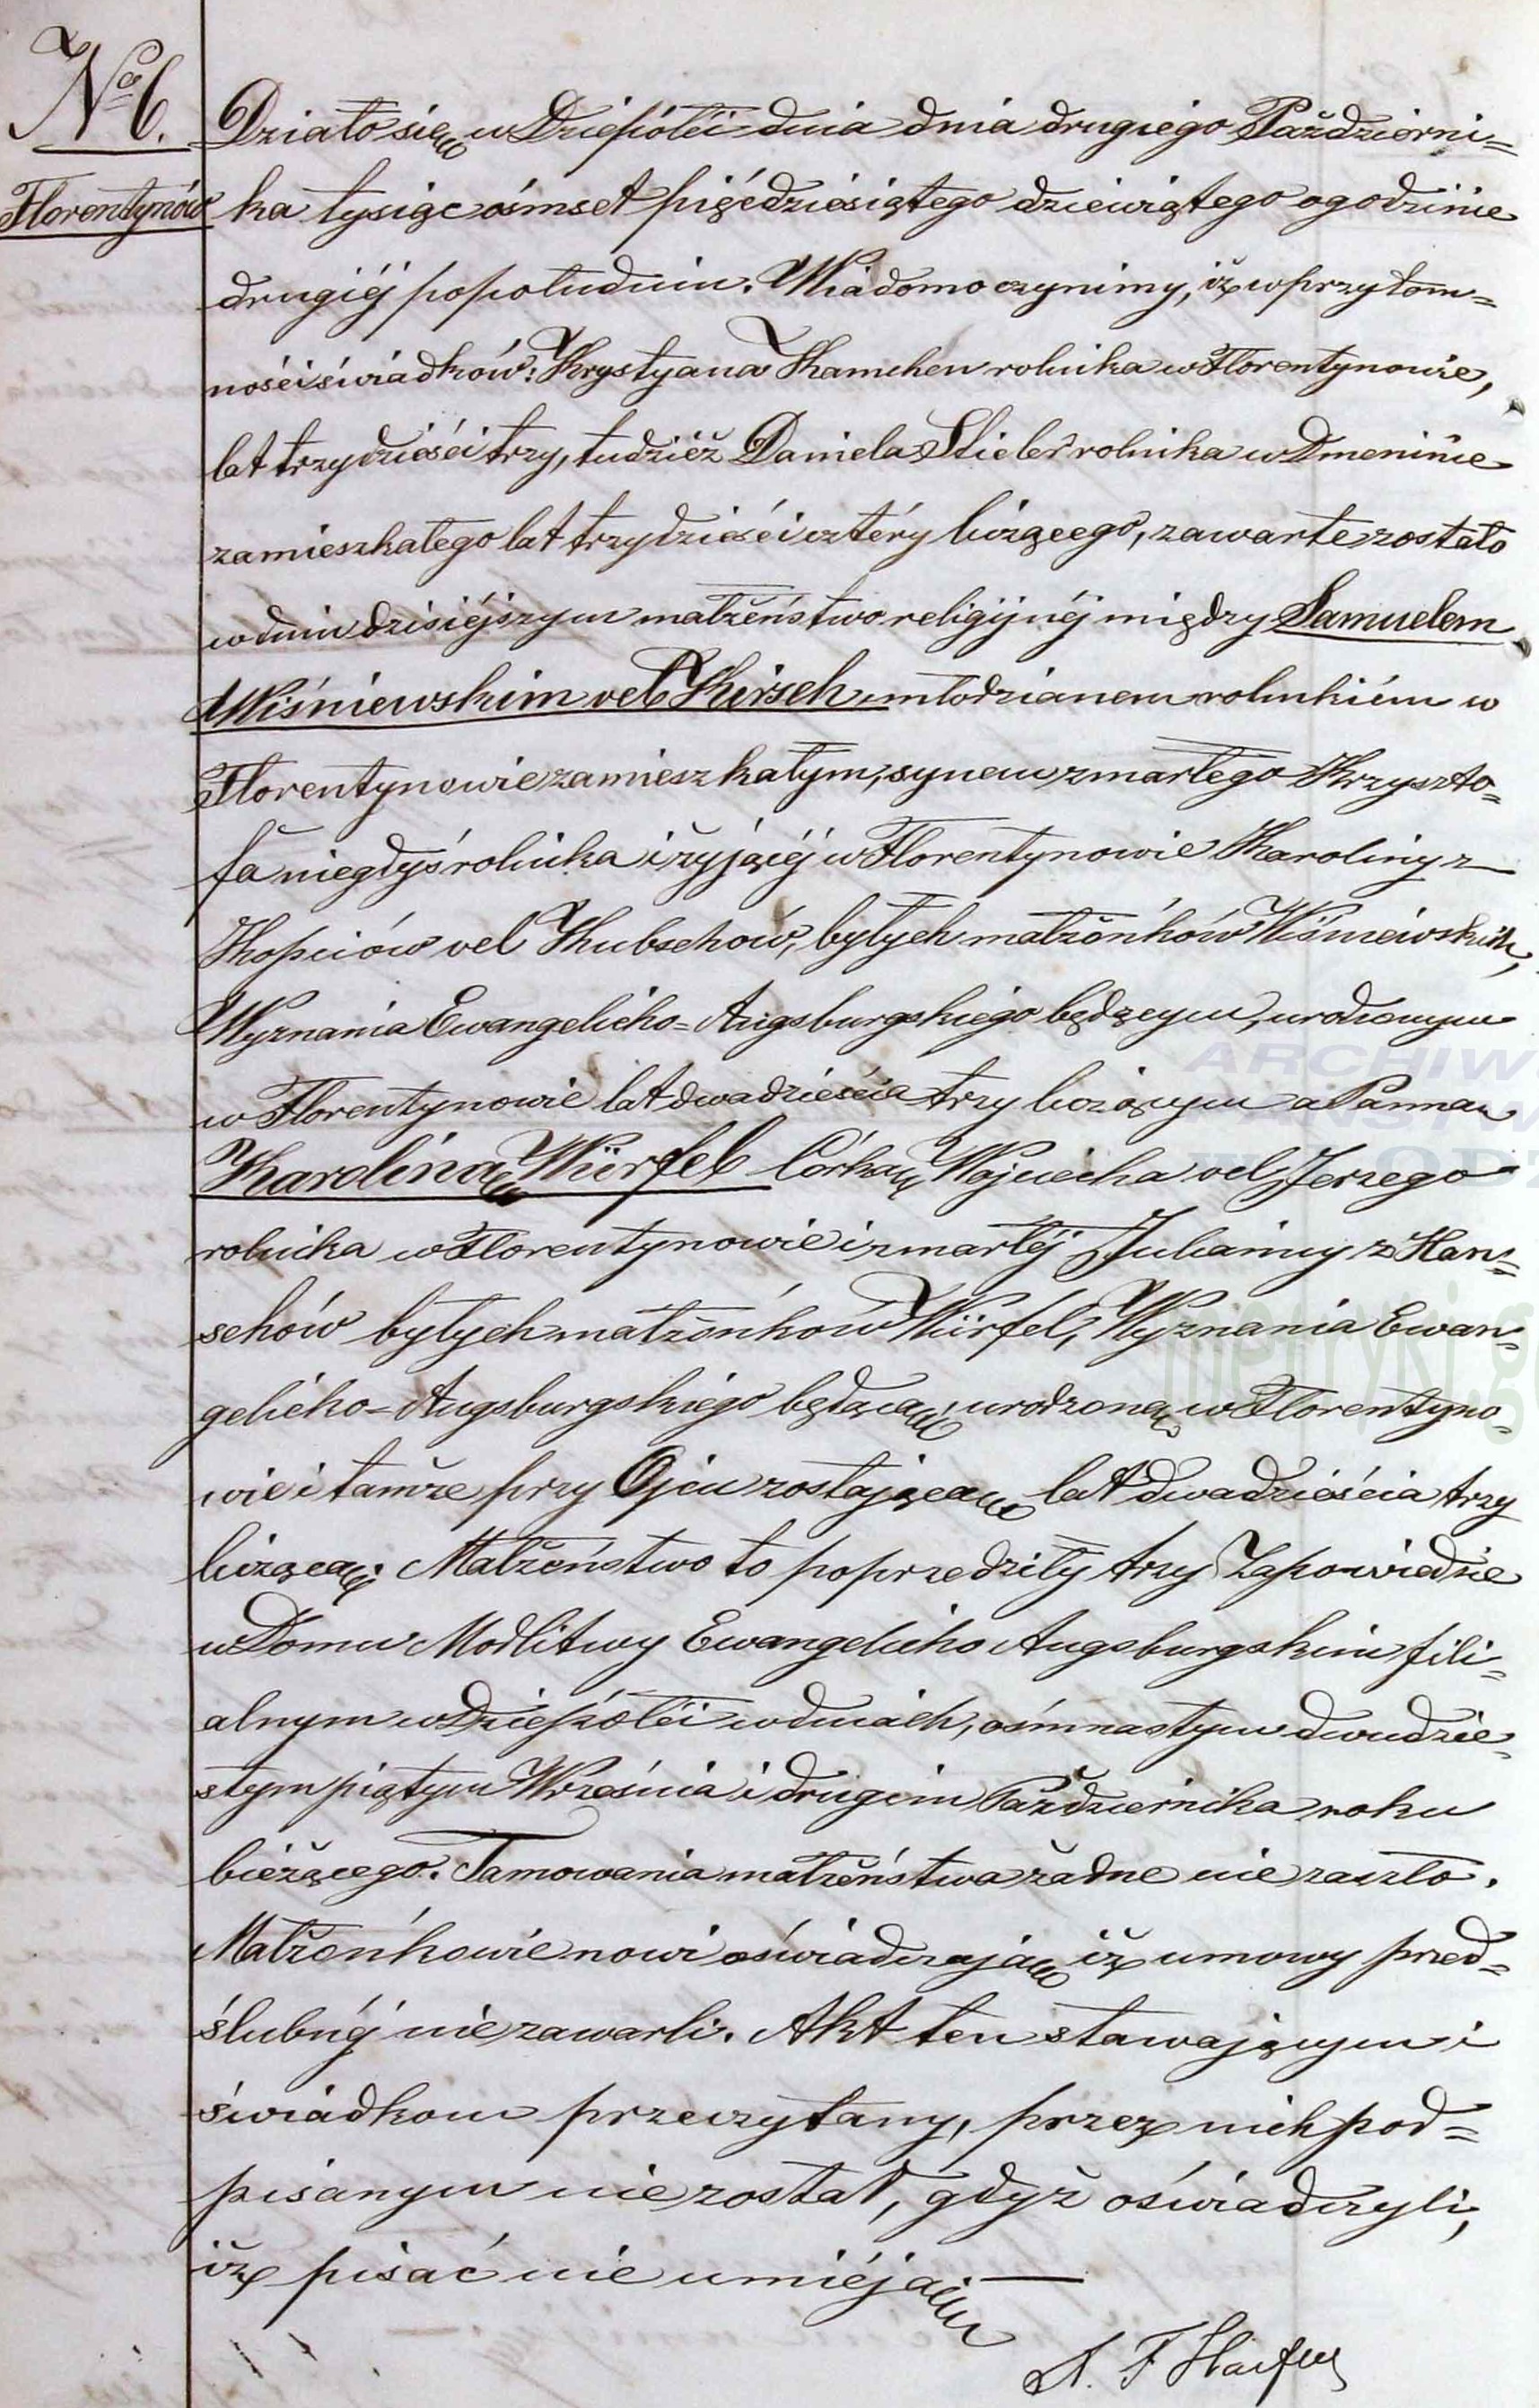 No 6.
Florentynów
Działo się w Dziepólci dnia dnia drugiego Październi=
ka tysiąc ośmset pięćdziesiątego dziewiątego o godzinie
drugiéj popołudniu. Wiadomo czynimy, iż w przytom=
ności świadków: Krystyana Kamchen rolnika w Florentynowie,
lat trzydzieści trzy, tudzież Daniela Stieler rolnika w Dmeninie
zamieszkałego lat trzydzieści cztéry liczącego, zawarte zostało
w dniu dzisiéjszym małżeństwo religijnéj między Samuelem
Wiśniewskim vel Kirsch młodzianem rolnikiém w
Florentynowie zamieszkałym, synem zmarłego Krzyszto=
fa niegdyś rolnika i żyjącéj w Florentynowie Karoliny z
Kopciów vel Kubschów, byłych małżonków Wiśniewskich,
Wyznania Ewangelicko=Augsburgskiego będącym, urodzonym
w Florentynowie lat dwadzieścia trzy liczącym a Panną
Karoliną Würfel Córką Wojciecha vel Jerzego
rolnika w Florentynowie i zmarłéj Julianny z Han=
schów byłych małżonków Würfel, Wyznania Ewan=
gelicko=Augsburgskiego będącą, urodzoną w Florentyno=
wie i tamże przy Ojcu zostającą lat dwadzieścia trzy
liczącą. Małżeństwo to poprzedziły trzy Zapowiedzie
w Domu Modlitwy Ewangelicko Augsburgskim fili=
alnym w Dziepólci w dniach, ośmnastym dwudzie=
stym piątym Września i drugim Października roku
bieżącego. Tamowania małżeństwa żadne nie zaszło.
Małżonkowie nowi oświadczają iż umowy przed=
ślubnéj nie zawarli. Akt ten stawającym i
świadkom przeczytany, przez nich pod=
pisanym nie został, gdyż oświadczyli,
iż pisać nie umiéją
ARCHIW
PAŃSTW
W ŁODZ
metryki.g